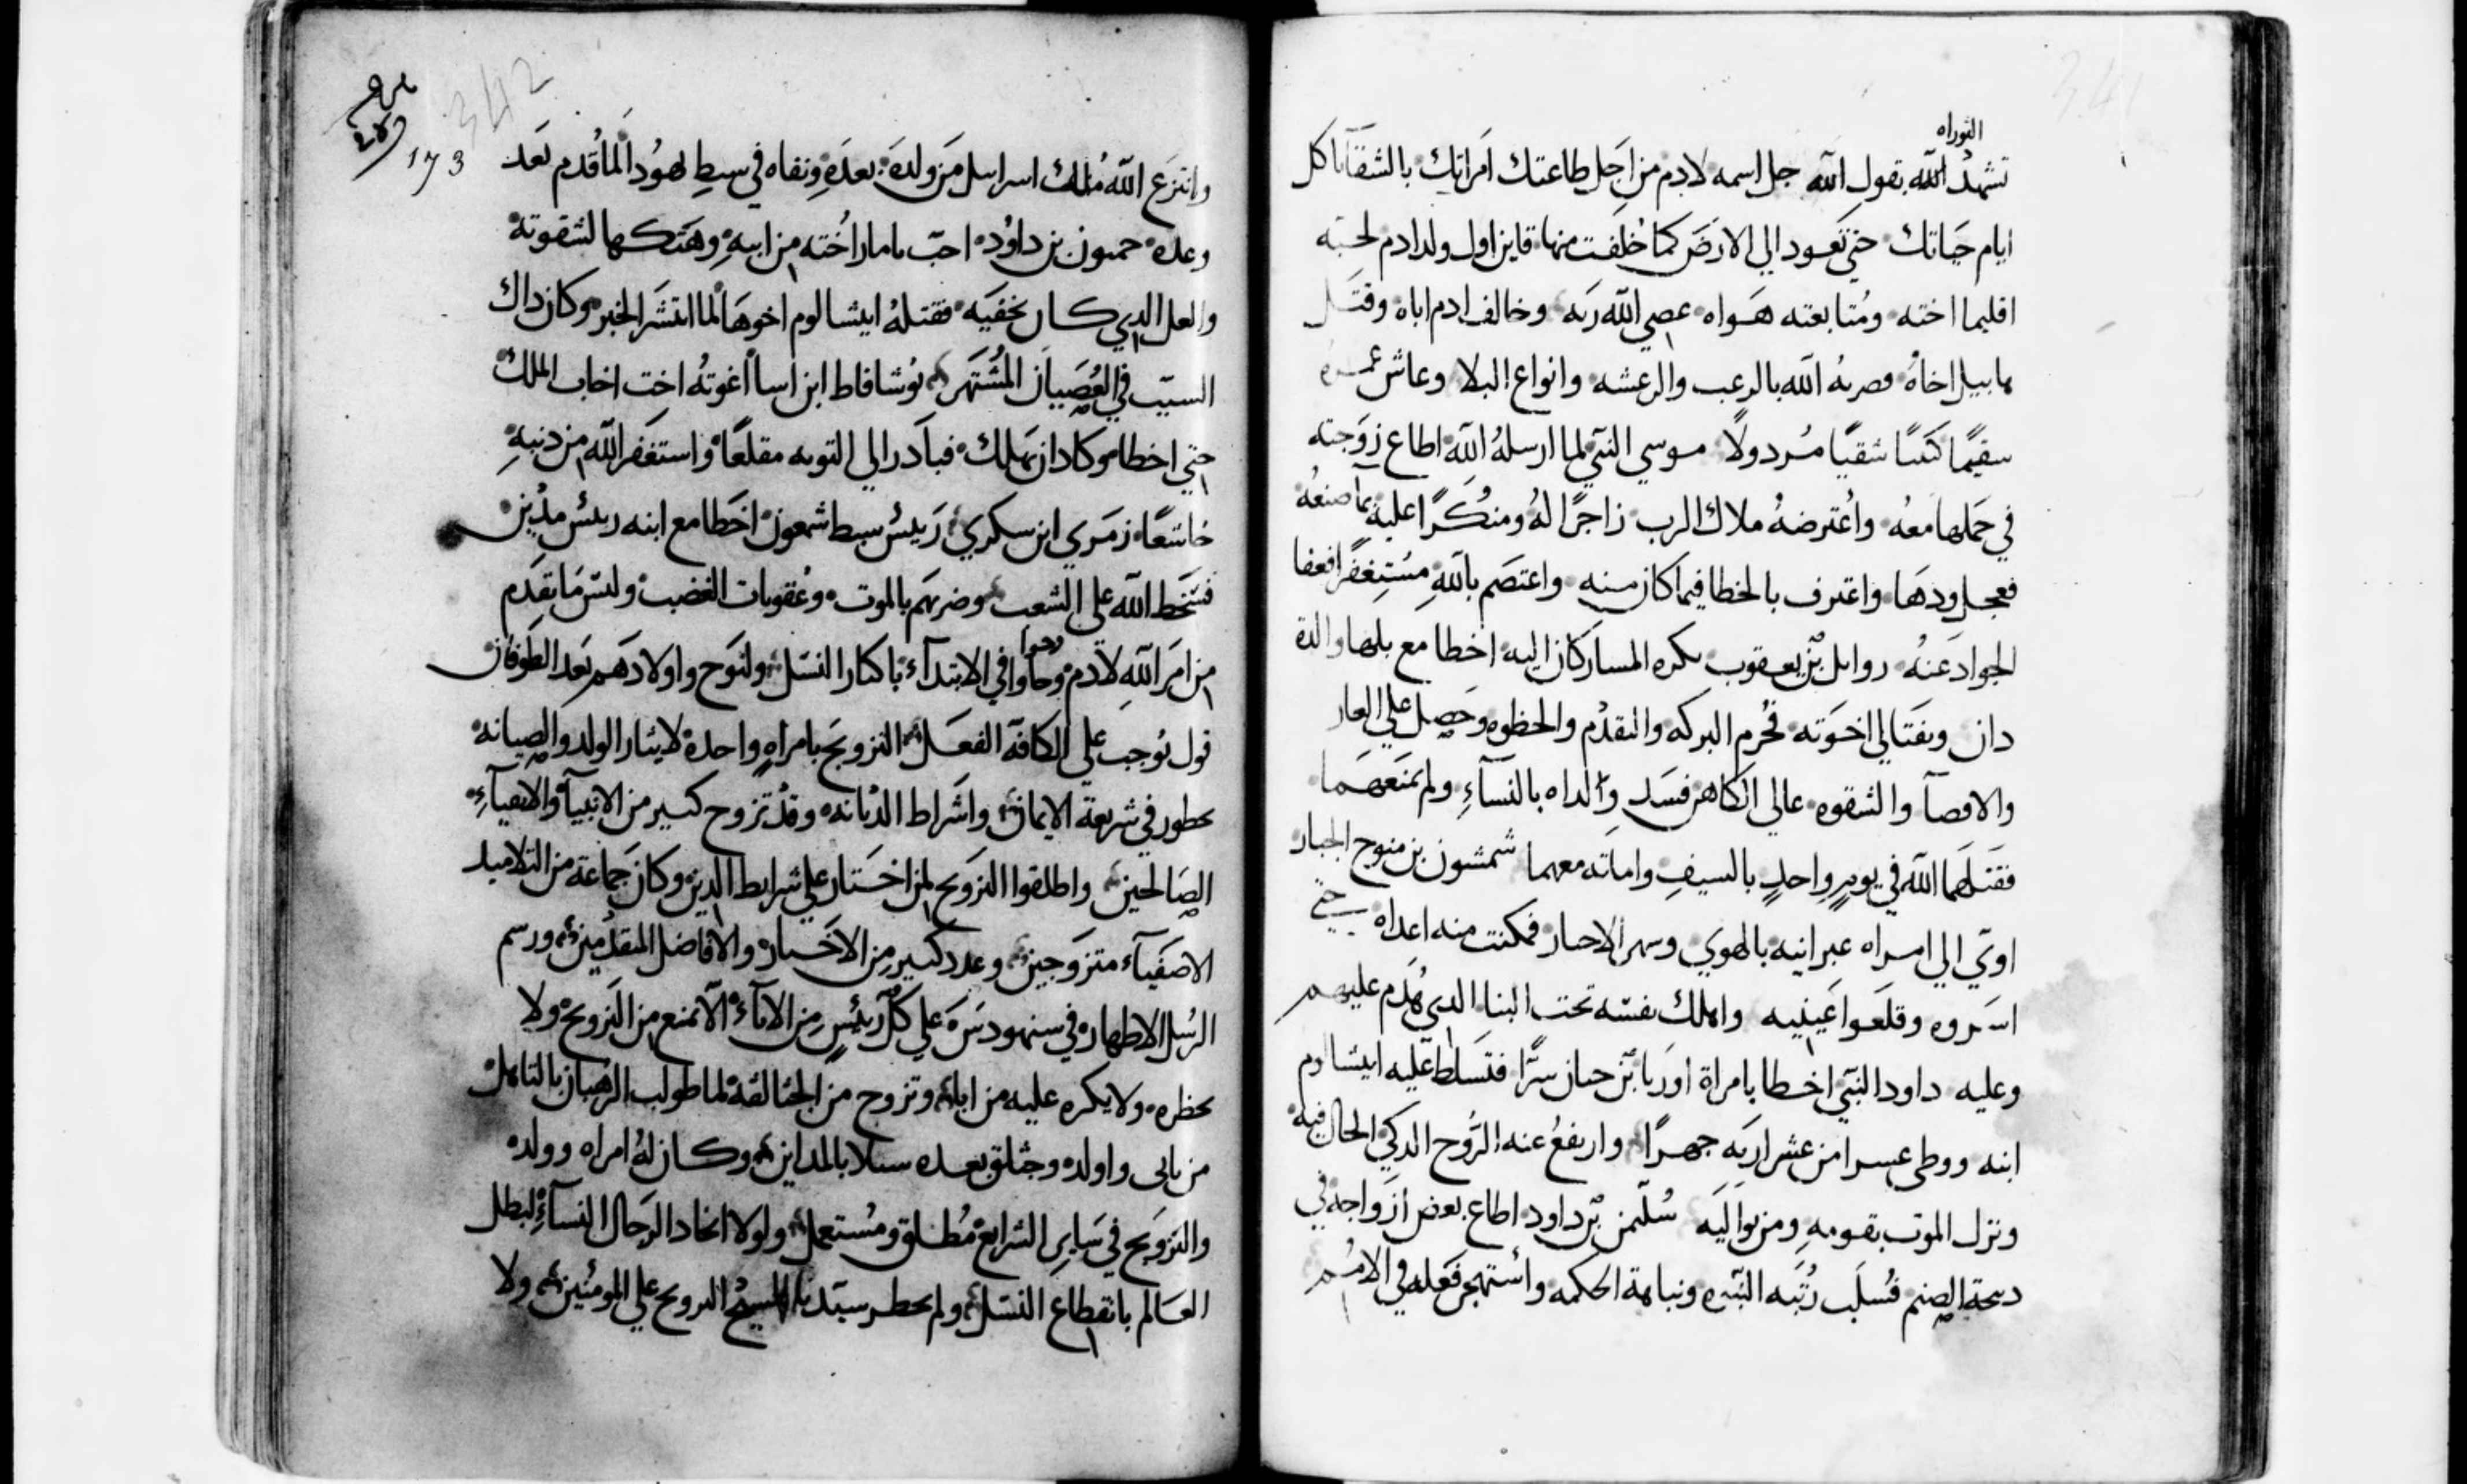 التوراه
تشهد الله بقول الله جل اسمه لادم من اجل طاعتك امراتك بالشقآ تاكل
ايام حياتك حتي تعود الي الارض كما خلقت منها قاين اول ولد ادم لمحبته
اقليما اخته ومتابعته هواه عصي الله ربه وخالف ادم اباه وقتل
هابيل اخاه فضربه الله بالرعب والرعشه وانواع البلا وعاش عمره
سقيما كئيبا شقيا مردولا موسي النبي لما ارسله الله اطاع زوجته
في حملها معه واعترضه ملاك الرب زاجرا له ومنكرا عليه بما صنعه
فعجل ردها واعترف بالخطا فيما كان منه واعتصم بالله مستغفرا فعفا
الجواد عنه روابيل بن يعقوب بكره المسار كان اليه اخطا مع بلها والدة
دان ونفتالي اخوته فحرم البركه والتقدم والحظوه وحصل علي العار
والاقصآ والشقوه عالي الكاهن فسد ولداه بالنسآء ولم يمنعهما
فقتلهما الله في يوم واحد بالسيف واماته معهما شمشون بن منوح الجبار
اوي الي امراه عبرانيه بالهوي وسهر الاحبار فمكنت منه اعداه حتي
اسروه وقلعوا عينيه واهلك نفسه تحت البنا الدي هدم عليهم
وعليه داود النبي اخطا بامراة اوريا بن حنان سرا فتسلط عليه ابيشالوم
ابنه ووطي عسرا من عشراريه جهرا وارتفع عنه الروح الدكي الحال فيه
ونزل الموت بقومه ومن يواليه سليمن بن داود اطاع بعض ازواجه في
دبحة الصنم فسلب رتبه النبوه ونباهة الحكمه واستهجن فعله في الامم
342
173
وانتزع الله ملك اسراييل من ولده بعده ونفاه في سبط يهودا لما قدم بعد
وعده حمنون بن داود احب تامار اخته من ابيه وهتكها لشقوته
والعل الدي كان يخفيه فقتله ابيشالوم اخوها لما انتشر الخبر وكان داك
السبب في العصيان المشتهر يوشافاط ابن اسا اغوته اخت اخاب الملك
حتي اخطا وكاد ان يهلك فبادر الي التوبه مقلعا واستغفر الله من دنبه
خاشعا زمري ابن سكري رييس سبط شمعون اخطا مع ابنه رييس مدين
فسخط الله علي الشعب وضربهم بالموت وعقوبات الغضب وليس ما تقدم
من امر الله لادم وحاوا في الابتدآء باكثار النسل ولنوح واولادهم بعد الطوفان
قول يوجب علي الكافه الفعل التزويج بامراه واحدة لايثار الولد والصيانه
يحطور في شريعة الايمان واشراط الديانه وقد تزوج كثير من الانبيآء والاتقيآء
الصالحين واطلقوا التزويج لمن اختار علي شرايط الدين وكان جماعة من التلاميد
الاصفيآء متزوجين وعدد كثير من الاخيار والافاضل المتقدمين ورسم
الرسل الاطهار في سنهودس علي كل رييس من الابآء الا يمنع من التزويج ولا
يحظره ولا يكره عليه من اباه وتزوج من الجثالقة لما طولب الرهبان بالتاهل
من بابي واولد وجثلق بعده سيلا بالمداين وكان له امراه وولد
والتزويج في ساير الشرايع مطلق ومستعمل ولولا اتحاد الرجال النسآء لبطل
العالم بانقطاع النسل ولم يحظر سيدنا المسيح التزويج علي المومنين ولا